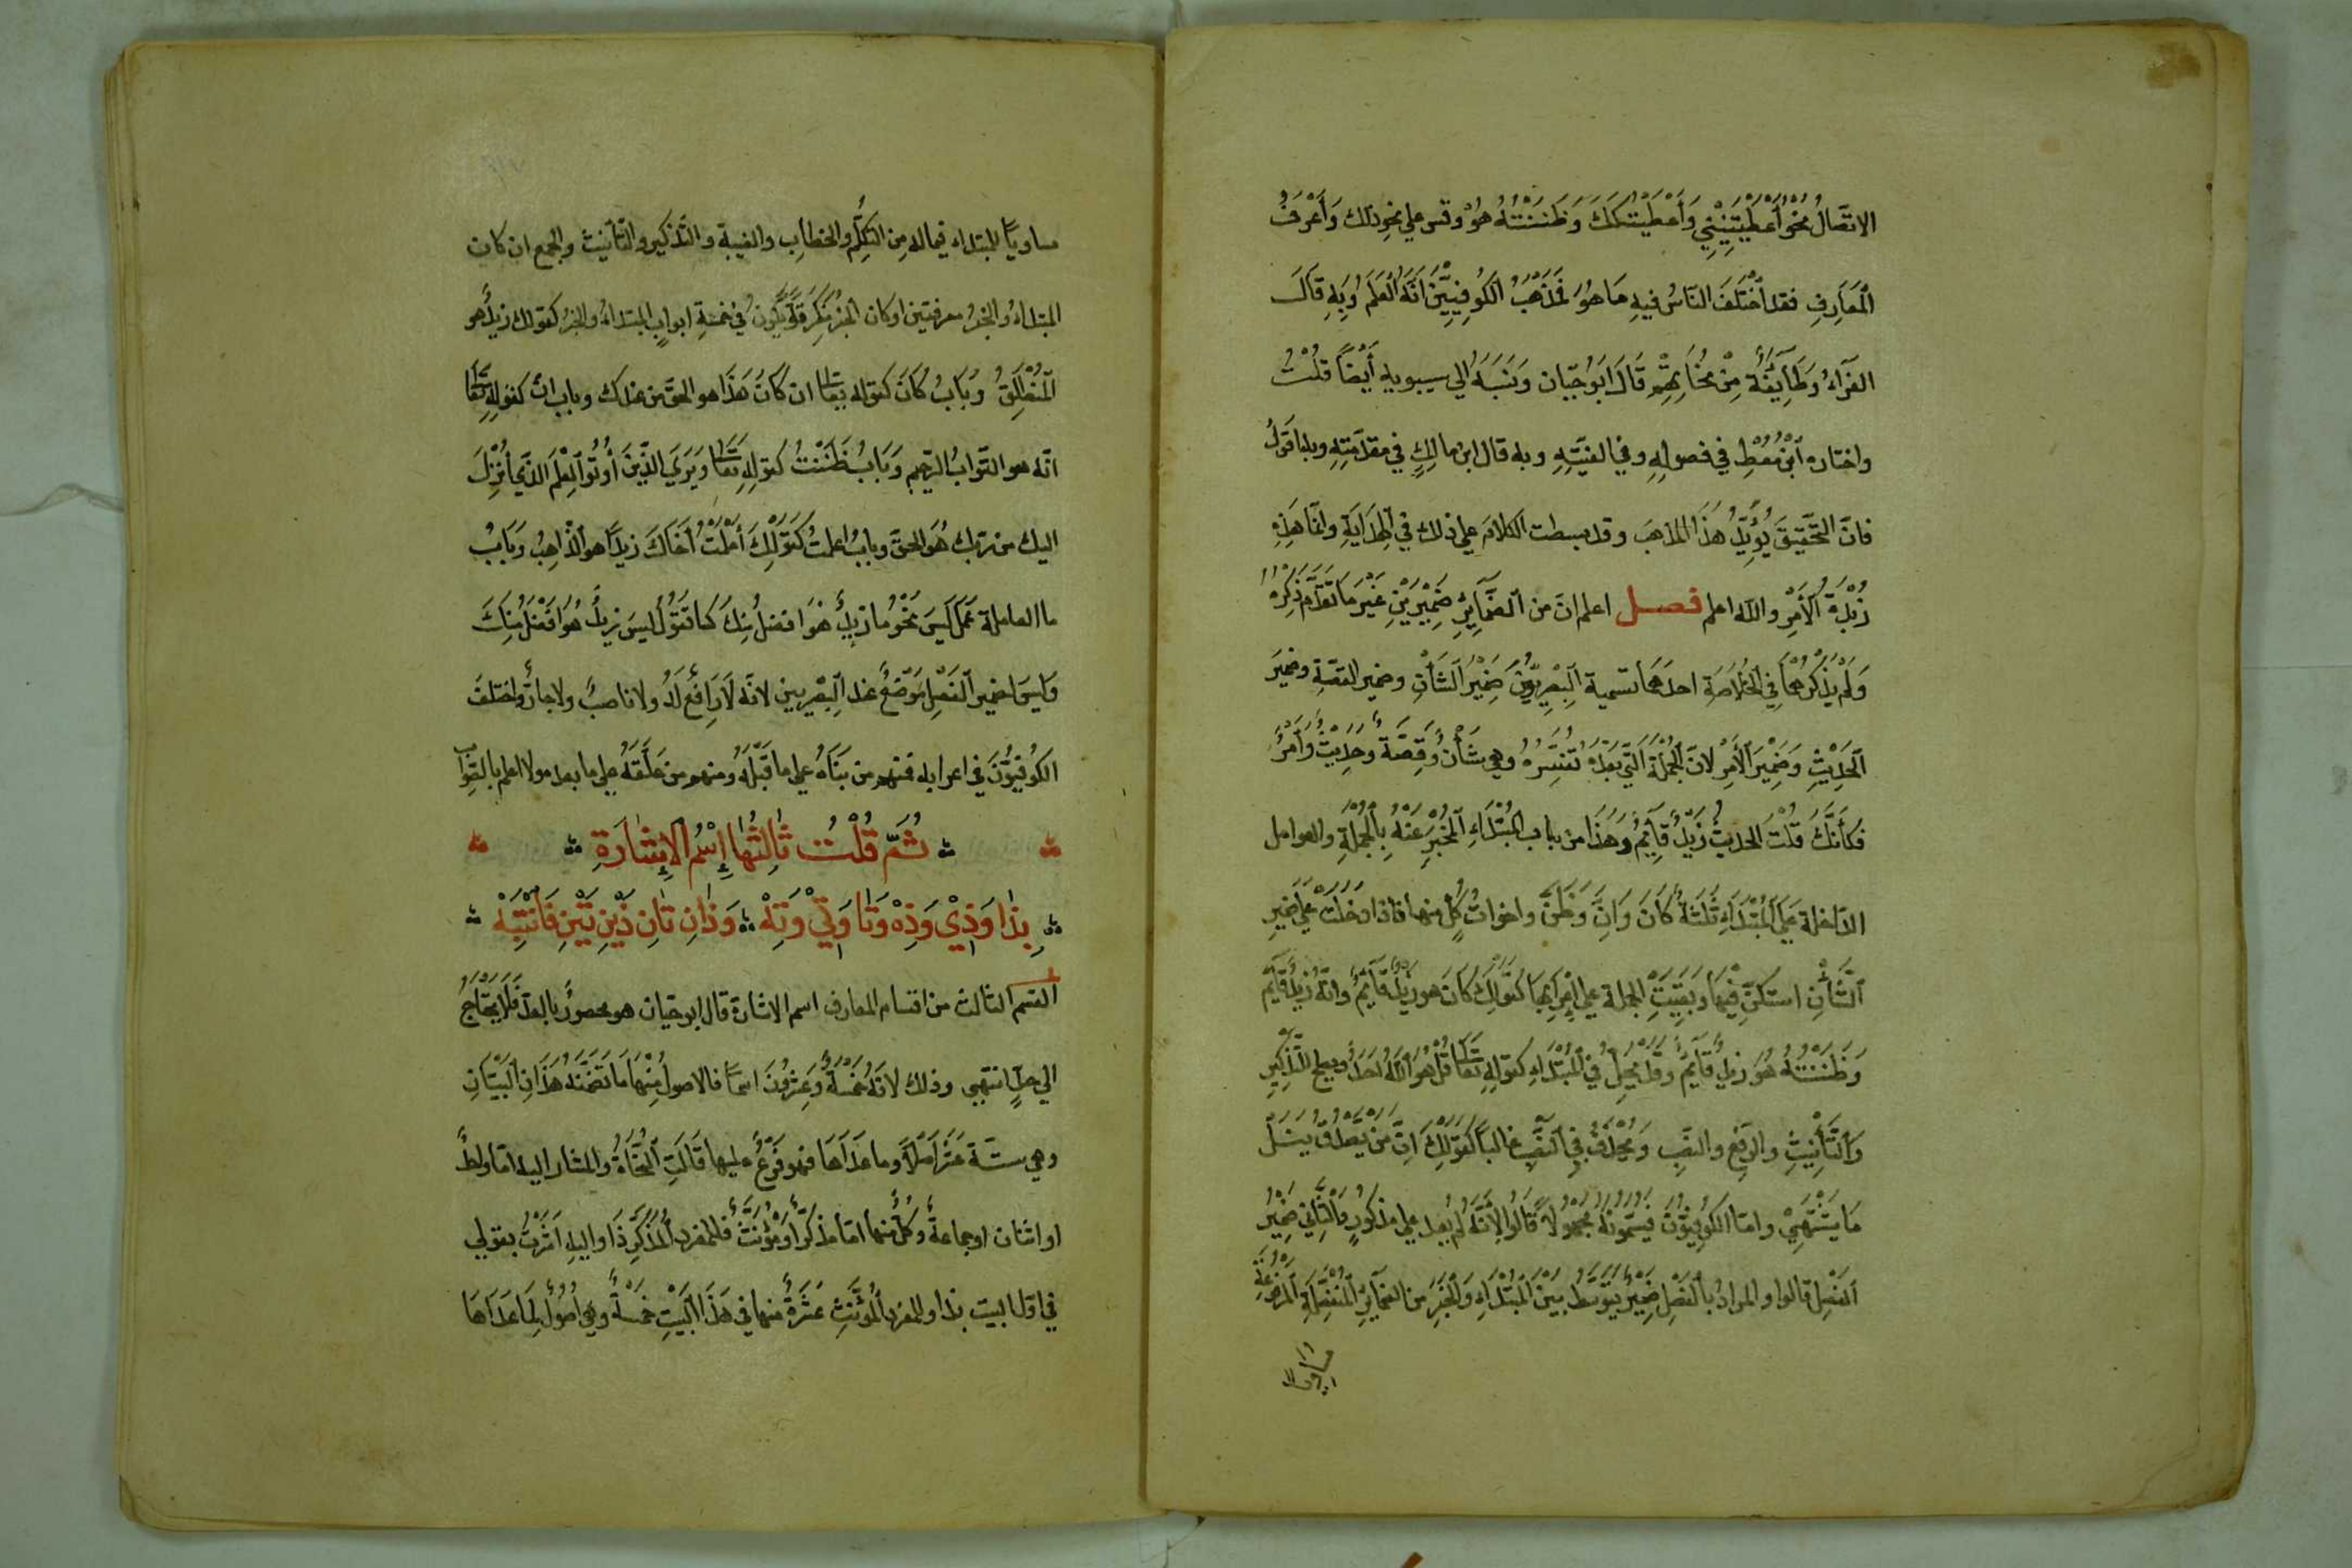 الاتصالُ نحوُ أَعْطَيْتَنِيْنِي وَأَعْطَيْتُكَكَ وَظَنَنْتُهُ هُوْ وقس علي نحوِ ذلك وَأَعْرَفُ
اْلمَعَارِفِ فقد اْخْتَلَفَ النَاسُ فيهِ مَا هُوَ فَمَذْهَبُ الكُوفِيِّيْنَ اَنّهَ اْلعَلَمُ وَبِهِ قَالَ
الفرّاءُ وَطَآئِفَةٌ مِنْ نُحَاتِهِمْ قَالَ ابَوُ حيّان وَنَسَبَهُ الي سيبويه أَيْضاً قُلْتُ
واختاره اْبنُ مُعْطٍ في فصولِهِ وفي الفيّتِهِ وبه قال ابن مالِكٍ في مقدّمتِهِ وبه اقولُ
فانّ التَحْقِيقَ يُؤَيِّدُ هَذَا المذهبَ وقد بسطت الكلامَ علي ذلك في الهِدَايَةِ وانمّا هَذِهِ
زُبْدَةُ اْلأَمْرِ والله اعلم فصل اعلم انّ من الضَّمَآيِرِ ضَمِيْرَيْنِ غَيْرَ مَا تَقَدّمَ ذِكْرُهُ
وَلَمْ يَذْكُرْهُمَا في الخُلاَصَةِ احدهمَا تسمية اْلبِصْرِيّوُنَ ضَمِيْرَ اْلشَأْنِ وضمير القصّةِ وضميرَ
اْلحَدِيْثِ وَضَمِيْرَ اْلأَمْرِ لانّ اْلجُمْلَةَ الّتي بَعْدَهُ تُفَسِّرُهُ وهي شَأْنٌ وَقِصّةٌ وَحَدِيْثٌ وَأَمْرٌ
فَكَأنَّكَ قُلْتَ الحديثُ زَيْدٌ قَآيِمٌ وَهَذَا من باب المُبْتَدَاءِ اْلمُخْبَرِ عَنْهُ بِاْلجُمْلَةِ والعوامل
الدّاخلة عَلَي اْلمُبْتَدَاءِ ثَلَثَةٌ كَانَ وَاِنَّ وَظَنَّ واخواتُ كُلٍّ منها فاذا دَخَلَتْ عَلَي ضميرِ
اْلشَّأْنِ استكنَّ فِيْهَا وَبَقِيَتِ الجملة علي اِعْرَابِهَا كَقَوْلِكَ كَانَ هو زَيْدٌ قَآيِمٌ وانّهُ زَيْدٌ قَآيِمٌ
وَظَنَنْتُهُ هُوَ زَيْدٌ قَآيِمٌ وَقَدْ يَجِيُ في اْلمُبْتَدَاءِ كقولِهِ تعَالَي قُلْ هُوَ اْللّهُ اَحَدٌ ويصح للتَّذْكِيْرِ
وَاْلتَّأْنِيْثِ والرّفعِ والنصْبِ وَيُحْذَفُ فِي اْلنَّصْبِ غالباً كَقَوْلِكَ اِنَّ مَنْ يَصْدُقْ يَنَلْ
مَا يَشْتَهِيْ وامّا الكُوفِيّوُنَ فيسمّونَهُ مَجْهُولاً قَالُوا لِأَنَّهُ لم يُعد علي مذكُورٍ وَاْلثّانِي ضَمِيْرُ
اْلفَصْلِ قالوا والمرادُ باْلفَصْلِ ضَمِيْرٌ يَتَوَسَّطُ بَيْنَ اْلمُبْتَدَاءِ وَاْلخَبَرِ من الضمآيِرِ اْلمُنْفَصِلَةِ اْلمَرْفُوعَةِ
مساوياً للمبتداء فيما له مِنَ التَكلُّمِ والخطابِ والغيبة والتّذكيرِ والتّأنيث والجمع ان كان
المبتداءُ والخبرُ معرفتين او كان الخبرُ نكرةً وَيَكُونُ في خمسةِ ابوابٍ المبتداءُ والخبرُ كقولك زيدٌ هو
اْلمُنْطَلِقُ وَبَابُ كَانَ كقوله تعَالَي ان كَانَ هَذَا هو الحقَّ من عندك وباب انّ كقولهِ تعَالَي
انّه هو التّوابُ الرّحيم وَبَابُ ظَنَنْتُ كقولِهِ تَعَالَي وَيَرَي الّذِيْنَ أُوْتُوا اْلعِلْمَ الذّي أُنْزِلَ
اليك من ربّك هُوَ الحقَّ وبابُ اعلمتُ كَقَوْلِكَ أَعْلَمْتُ أَخَاكَ زيدًا هو اْلذّاهِبُ وَبَابُ
ما العاملة عَمَلَ لَيْسَ نَحْوُ ما زيدٌ هُوَ افضلُ مِنْكَ كما تَقُولُ ليسَ زيدٌ هُوَ افْضَلَ مِنْكَ
وَليسَ لضمير اْلفَصْلِ مَوْضِعٌ عند اْلبِصْرِيين لانّه لَا رَافِعَ لَهُ ولا ناصبٌ ولا جارٌّ واختلفَ
الكُوفِيّوُنَ في اعرابه فمنهم من بَنَاهُ علي ما قَبْلَهُ ومنهم من عَلّقَهُ علي ما بعده والله اعلم بالصّواب
ثُمَّ قُلْتُ ثَالِثُهَا اِسْمُ اْلإِشَارَةِ
بِذَا وَذِيْ وَذِهْ وَتَا وَتِيْ وَتِهْ وَذَانِ تَانِ ذَيْنِ تَيْنِ فَانْتَبِهْ
القسم الثالث من اقسام المعارف اسم الاشارة قال ابو حيان هو محصورٌ بالعدّ فَلَا يَحْتَاجُ
الي حدٍّ انتهي وذلك لانّه خَمْسَةٌ وَعِشْرُونَ اسمًا فالاصولُ مِنْهَا مَا تَضَمَّنَهُ هَذَانِ اْلبَيْتَانِ
وهي ستّة عَشَرَ اَصْلاً وما عَدَاهَا فهو فَرْعٌ عليها قَالَتِ اْلنُّحَاةُ والمشار اليه امّا واحدٌ
او اثنان او جماعةٌ وَكُلٌّ منها امّا مذكّرٌ أَوْ مُؤَنَّثٌ فللمفرد اْلمُذَكَّرِ ذَا واليه اَشَرْتُ بقولي
في اول البيت بذا وللمفرد اْلمُؤَنَّثِ عَشَرَةٌ منها في هَذَا اْلبَيْتِ خمسةٌ وهي أُصُولٌ لِمَا عَدَاهَا